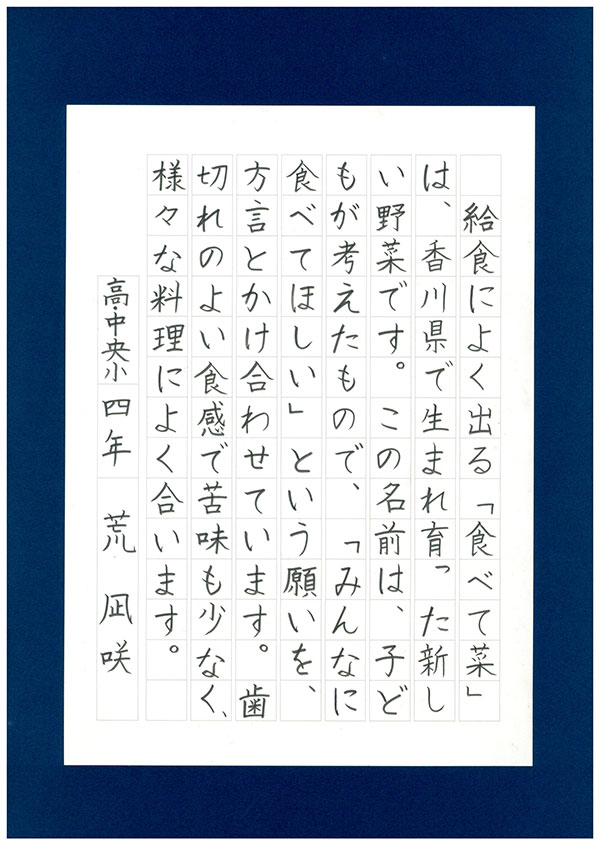 給食によく出る「食べて菜」
は、香川県で生まれ育った新し
い野菜です。この名前は、子ど
もが考えたもので、「みんなに
食べてほしい」という願いを、
方言とかけ合わせています。歯
切れのよい食感で苦味も少なく、
様々な料理によく合います。
高・中央小 四年 荒 凪咲